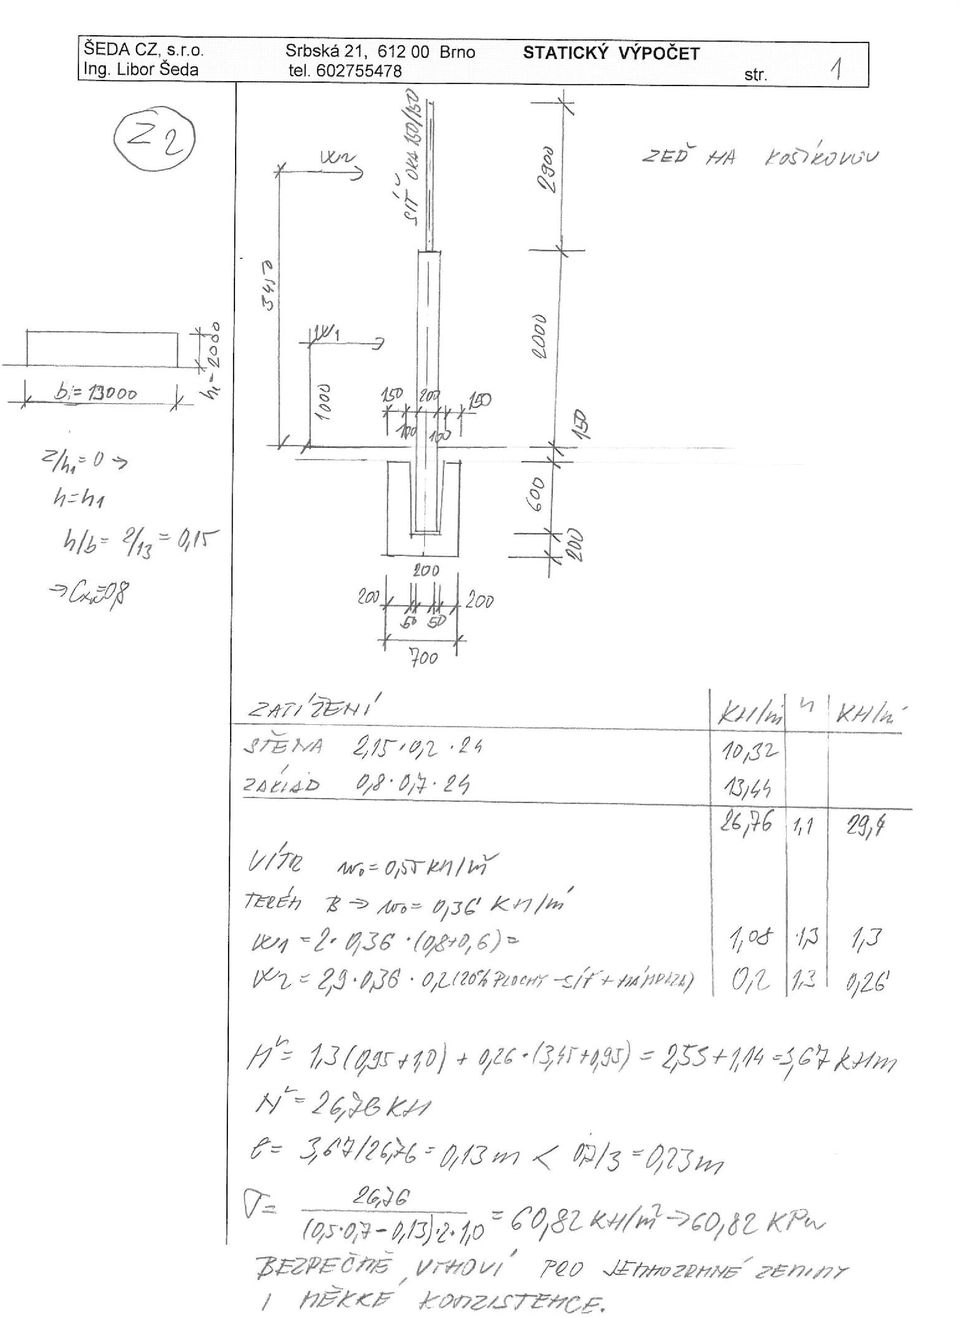 ŠEDA CZ, s.r.o. Srbská 21, 612 00 Brno STATICKÝ VÝPOČET
Ing. Libor Šeda tel. 602755478 str. 1
Z2
ZEĎ NA KOŠÍKOVOU
W2
SÍŤ OKA 150/150
2900
3450
W1
1000
2000
150 200 150
100 100
150
600
200
200
200 200
50 50
700
h1=2000
b1=13000
z/h1=0 →
h=h1
h/b= 2/13 = 0,15
ZATÍŽENÍ KN/m n KN/m
STĚNA 2,15·0,2·24 10,32
ZÁKLAD 0,8·0,7·24 13,44
26,76 1,1 29,4
VÍTR w0=0,55 KN/m²
TERÉN B → w0= 0,36 KN/m²
W1 = 2·0,36·(0,8+0,6)= 1,08 1,3 1,3
W2 = 2,9·0,36·0,2 (20% PLOCHY -SÍŤ + NÁMRAZA) 0,2 1,3 0,26
M = 1,3(0,95+1,0) + 0,26·(3,45+0,95) = 2,53+1,14=3,67 KNm
N = 26,76 KN
e= 3,67/26,76=0,13m < 0,7/3=0,23m
σ= 26,76 / (0,5·0,7-0,13)·2·1,0 = 60,82 KN/m² → 60,82 KPa
BEZPEČNĚ VYHOVÍ PRO JEMNOZRNNÉ ZEMINY
I MĚKKÉ KONZISTENCE.